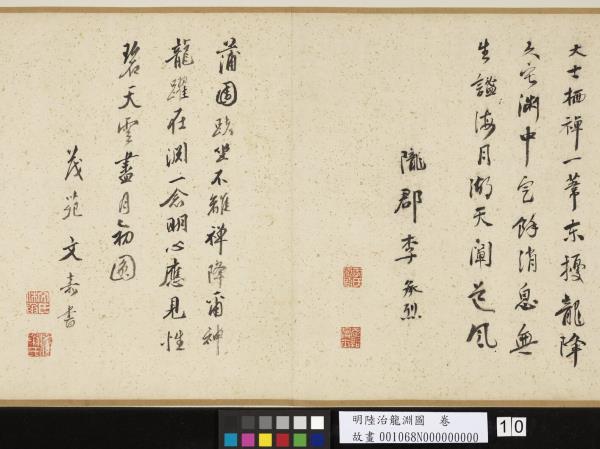 大士栖禪一葦東擾龍降
淵中定餘消息無
生謐海月湖天闌迅風
隴郡李承烈
蒲團趺坐不離禪降甫神
龍躍在淵一念明心應見性
碧天雲盡月初圓
茂苑文嘉書
明陸治龍淵圖 卷
故畫 001068N000000000
10